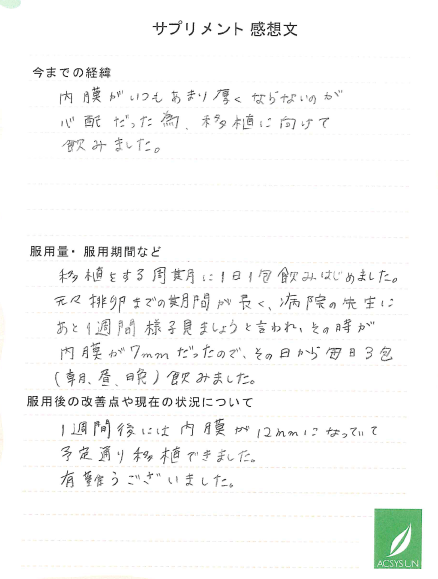 サプリメント 感想文
今までの経緯
内膜がいつもあまり厚くならないのが
心配だった為、移植に向けて
飲みました。
服用量・服用期間など
移植をする周期に1日1包飲みはじめました。
元々排卵までの期間が長く、病院の先生に
あと1週間様子見ましょうと言われ、その時が
内膜が7mmだったので、その日から毎日3包
(朝、昼、晩)飲みました。
服用後の改善点や現在の状況について
1週間後には内膜が12mmになっていて
予定通り移植できました。
有難うございました。
ACSYSUN